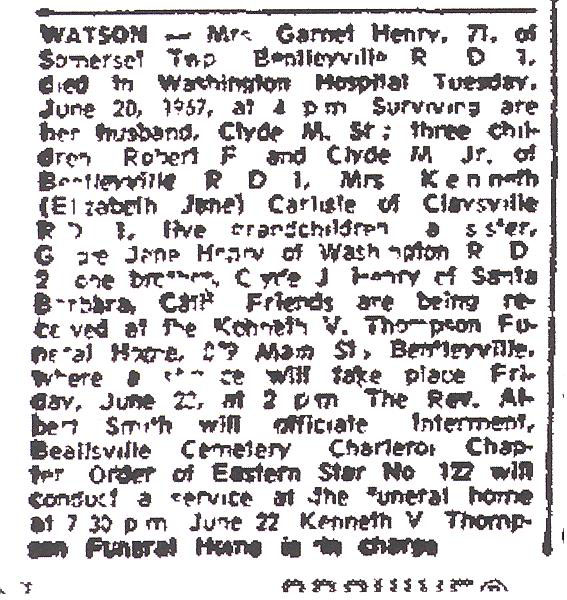 WATSON — Mrs Garnet Henry, 71, of
Somerset Twp Bentleyville R D 1,
died in Washington Hospital Tuesday,
June 20, 1967, at 4 p m Surviving are
her husband, Clyde M. Sr; three chil-
dren Robert F and Clyde M Jr. of
Bentleyville R D 1, Mrs Kenneth
(Elizabeth Jane) Carlisle of Claysville
R D 1, five grandchildren a sister,
Jane Henry of Washington R D
2 one brother, Clyde J Henry of Santa
Barbara, Calif Friends are being re-
ceived at the Kenneth V. Thompson Fu-
neral Home, Main St, Bentleyville,
where a service will take place Fri-
day, June 23, at 2 p m The Rev. Al-
bert Smith will officiate Interment,
Beallsville Cemetery Charleroi Chap-
ter Order of Eastern Star No 122 will
conduct a service at the funeral home
at 7 30 p m June 22 Kenneth V Thomp-
son Funeral Home is in charge